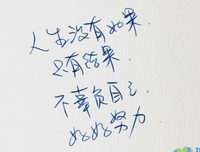 人生没有如果.
只有结果.
不辜负自己,
好好努力.